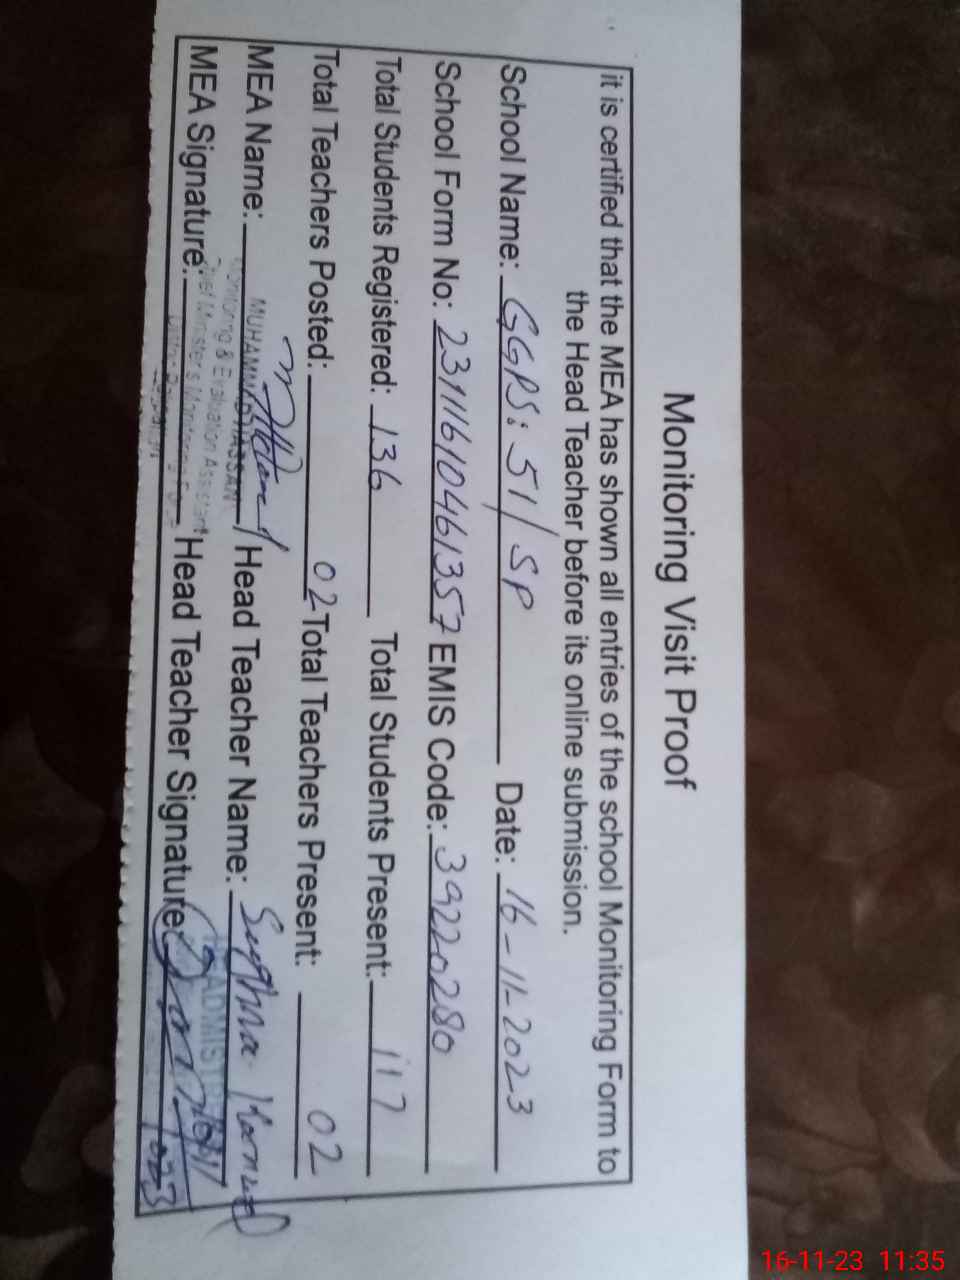 Monitoring Visit Proof
it is certified that the MEA has shown all entries of the school Monitoring Form to
the Head Teacher before its online submission.
School Name: GGPS: 51/SP Date: 16-11-2023
School Form No: 23111610461357 EMIS Code: 39220280
Total Students Registered: 136 Total Students Present: 117
Total Teachers Posted: 02 Total Teachers Present: 02
MEA Name: MUHAMMAD HASSAN Head Teacher Name:
Monitoring & Evaluation Assistant
MEA Signature: Chief Minister's Monitoring Force Head Teacher Signature
16-11-23 11:35